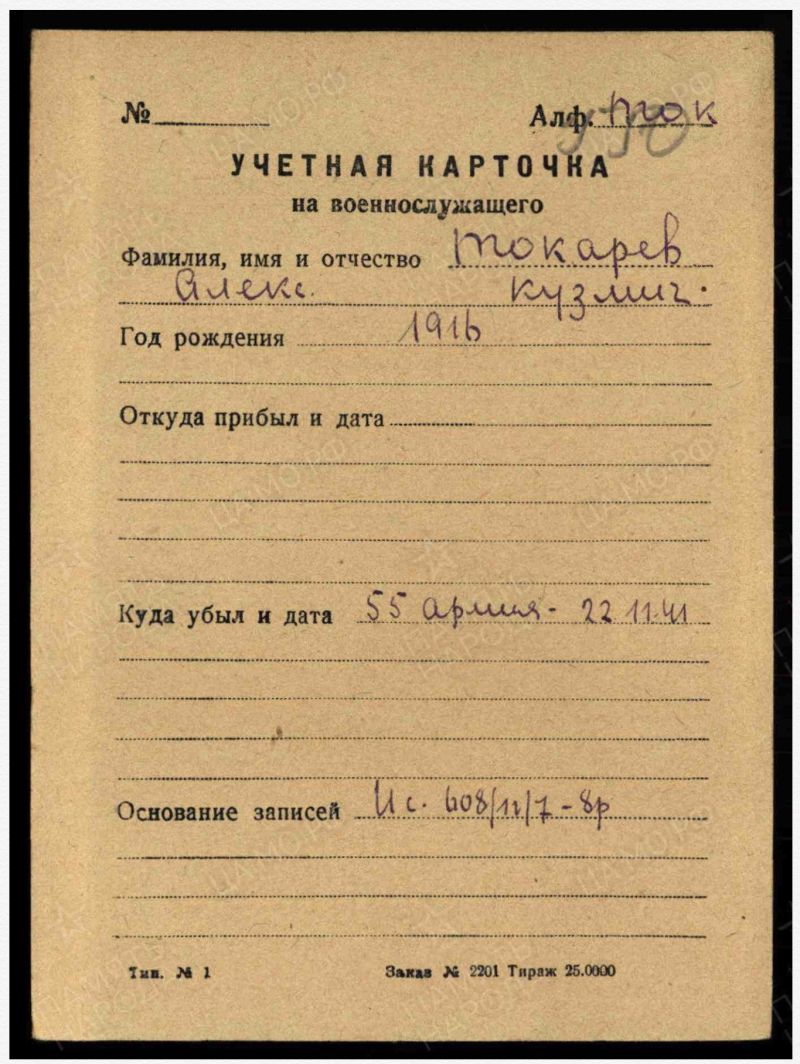 № Алф. Ток
УЧЕТНАЯ КАРТОЧКА
на военнослужащего
Фамилия, имя и отчество Токарев
Алекс. Кузмич.
Год рождения 1916
Откуда прибыл и дата
Куда убыл и дата 55 армия - 22 11.41
Основание записей Ис. 608/12/7-8р
Тип. № 1 Заказ № 2201 Тираж 25.0000